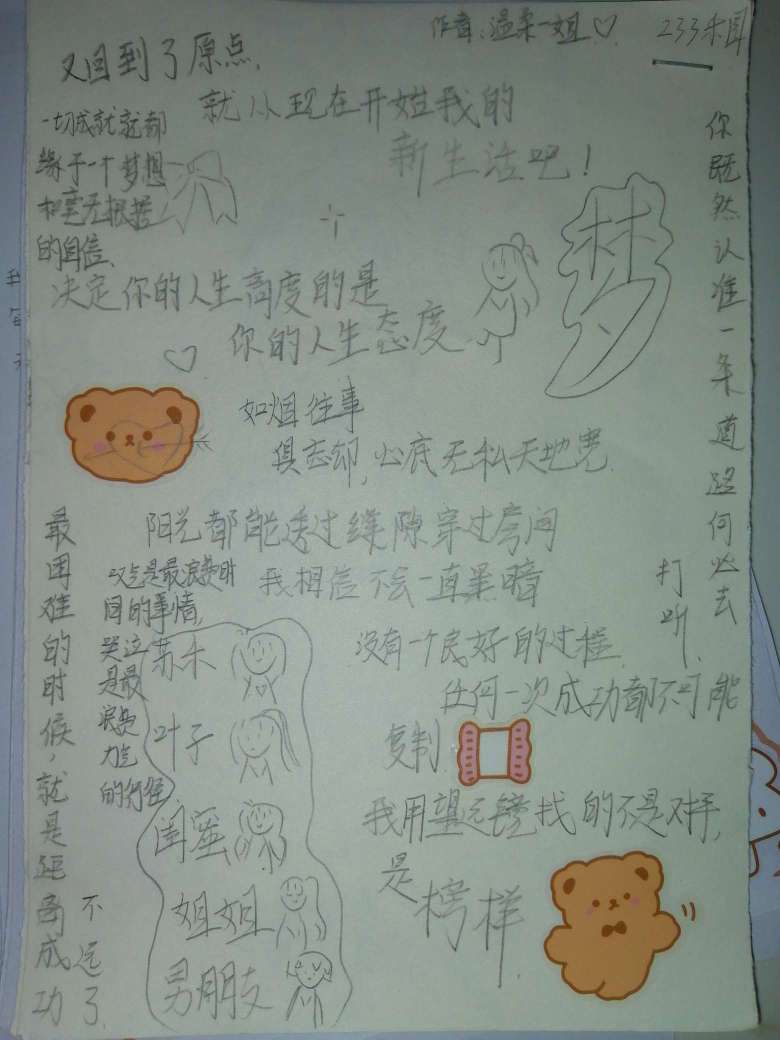 作者:温柔一姐♡
又回到了原点,
就从现在开始我的
新生活吧!
一切成就就都
缘于一个梦想
和毫无根据
的自信、
梦
你既然认准一条道路何必去
打听
决定你的人生高度的是
你的人生态度
如烟往事
俱忘却,心底无私天地宽
阳光都能透过缝隙穿过房间
我相信不会一直黑暗
最困难的时候,就是距离成功
不远了
叹气是最浪费时
间的事情,
哭泣
是最
浪费
力气
的行径
苏禾
叶子
闺蜜
姐姐
男朋友
没有一个良好的过程
任何一次成功都不可能
复制
我用望远镜找的不是对手,
是
榜样